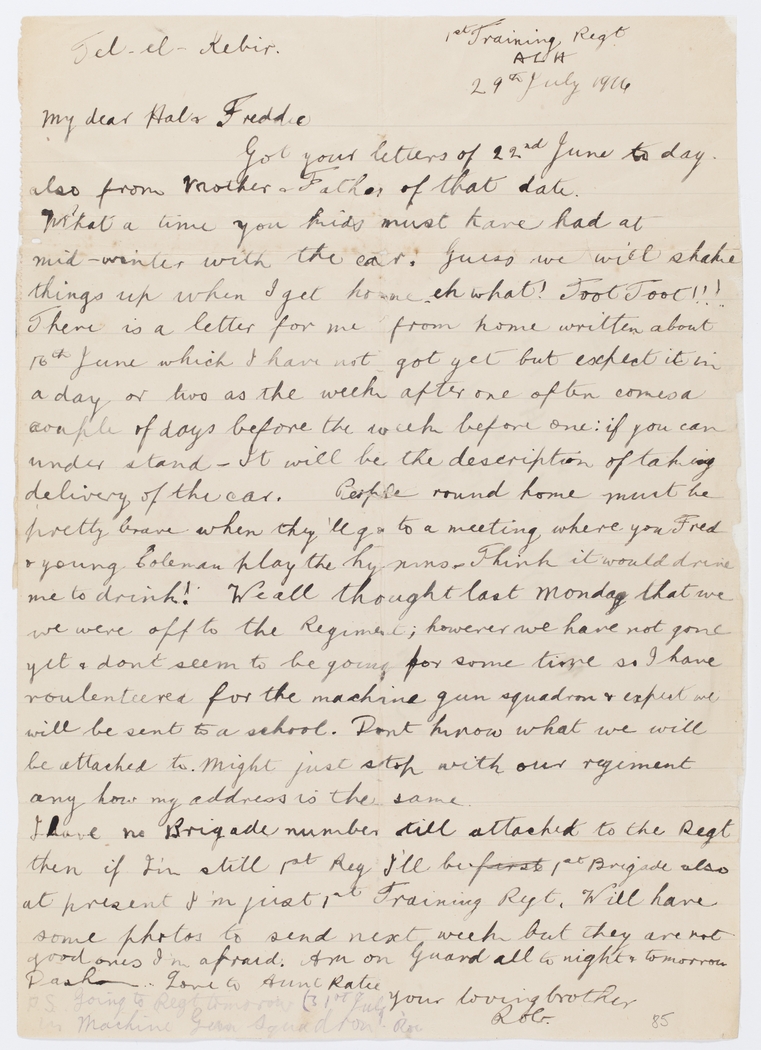 Tel-el-Kebir.
1st Training Regt
ALH
29th July 1916
My dear Hal & Freddie
Got your letters of 22nd June to day.
also from Mother & Father of that date.
What a time you kids must have had at
mid-winter with the car. Guess we will shake
things up when I get home eh what! Toot Toot!!!
There is a letter for me from home written about
16th June which I have not got yet but expect it in
a day or two as the week after one often comes a
couple of days before the week before one: if you can
under stand - It will be the description of taking
delivery of the car. People round home must be
pretty brave when they'll go to a meeting where you Fred
& young Coleman play the hymns - Think it would drive
me to drink! We all thought last Monday that we
we were off to the Regiment; however we have not gone
yet & dont seem to be going for some time so I have
voulenteered for the machine gun squadron & expect we
will be sent to a school. Dont know what we will
be attached to. Might just stop with our regiment
any how my address is the same.
I have no Brigade number till attached to the Regt
then if I'm still 1st Reg I'll be first 1st Brigade also
at present I'm just 1st Training Regt. Will have
some photos to send next week but they are not
good ones I'm afraid. Am on Guard all to night & tomorrow
Dash. Love to Aunt Katie
your loving brother
Rob.
P.S. Going to Regt tomorrow July
Machine Gun Squadron.
85